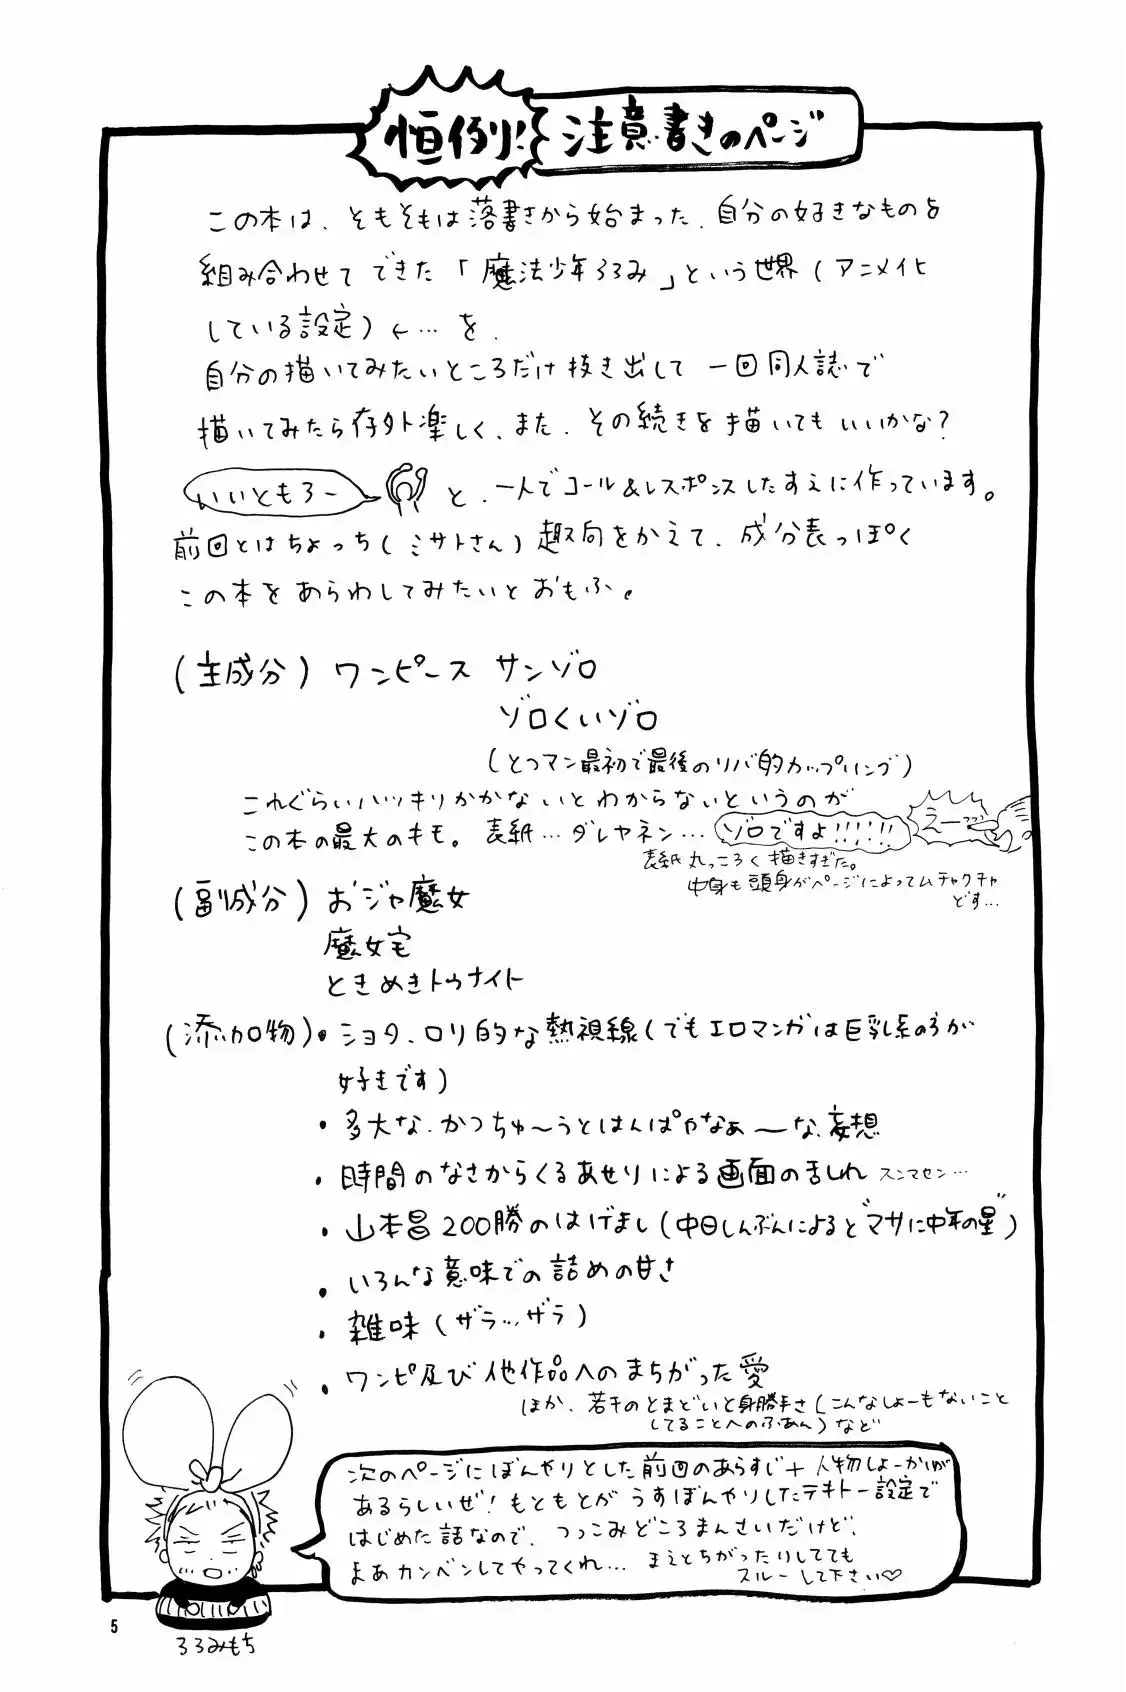 恒例!注意書きのページ
この本は、そもそもは落書きから始まった、自分の好きなものを
組み合わせてできた「魔法少年ろろみ」という世界(アニメ化
している設定)←…を、
自分の描いてみたいところだけ抜き出して一回同人誌で
描いてみたら存外楽しく、また、その続きを描いてもいいかな?
いいともろー と、一人でコール&レスポンスしたすえに作っています。
前回とはちょっち(ミサトさん)趣向をかえて、成分表っぽく
この本をあらわしてみたいとおもふ。
(主成分)ワンピース サンゾロ
ゾロくいゾロ
(とつマン最初で最後のリバ的カップリング)
これぐらいハッキリかかないとわからないというのが
この本の最大のキモ。表紙…ダレヤネン…ゾロですよ!!!!!! えーっっっ
表紙丸っころく描きすぎた。
中身も頭身がページによってムチャクチャ
どす…
(副成分)おジャ魔女
魔女宅
ときめきトゥナイト
(添加物)・ショタ、ロリ的な熱視線(でもエロマンガは巨乳系の方が
好きです)
・多大な、かつちゅ〜うとはんぱやなぁ〜な、妄想
・時間のなさからくるあせりによる画面の乱れ スンマセン…
・山本昌200勝のはげまし(中日しんぶんによると"マサに中年の星")
・いろんな意味での詰めの甘さ
・雑味(ザラ…ザラ)
・ワンピ及び他作品へのまちがった愛
ほか、若干のとまどいと身勝手さ(こんなしょーもないこと
してることへのふあん)など
次のページにぼんやりとした前回のあらすじ+人物しょーかいが
あるらしいぜ!もともとがうすぼんやりしたテキトー設定で
はじめた話なので、つっこみどころまんさいだけど、
まあカンベンしてやってくれ…まえとちがったりしてても
スルーして下さい♡
ろろみもち
5